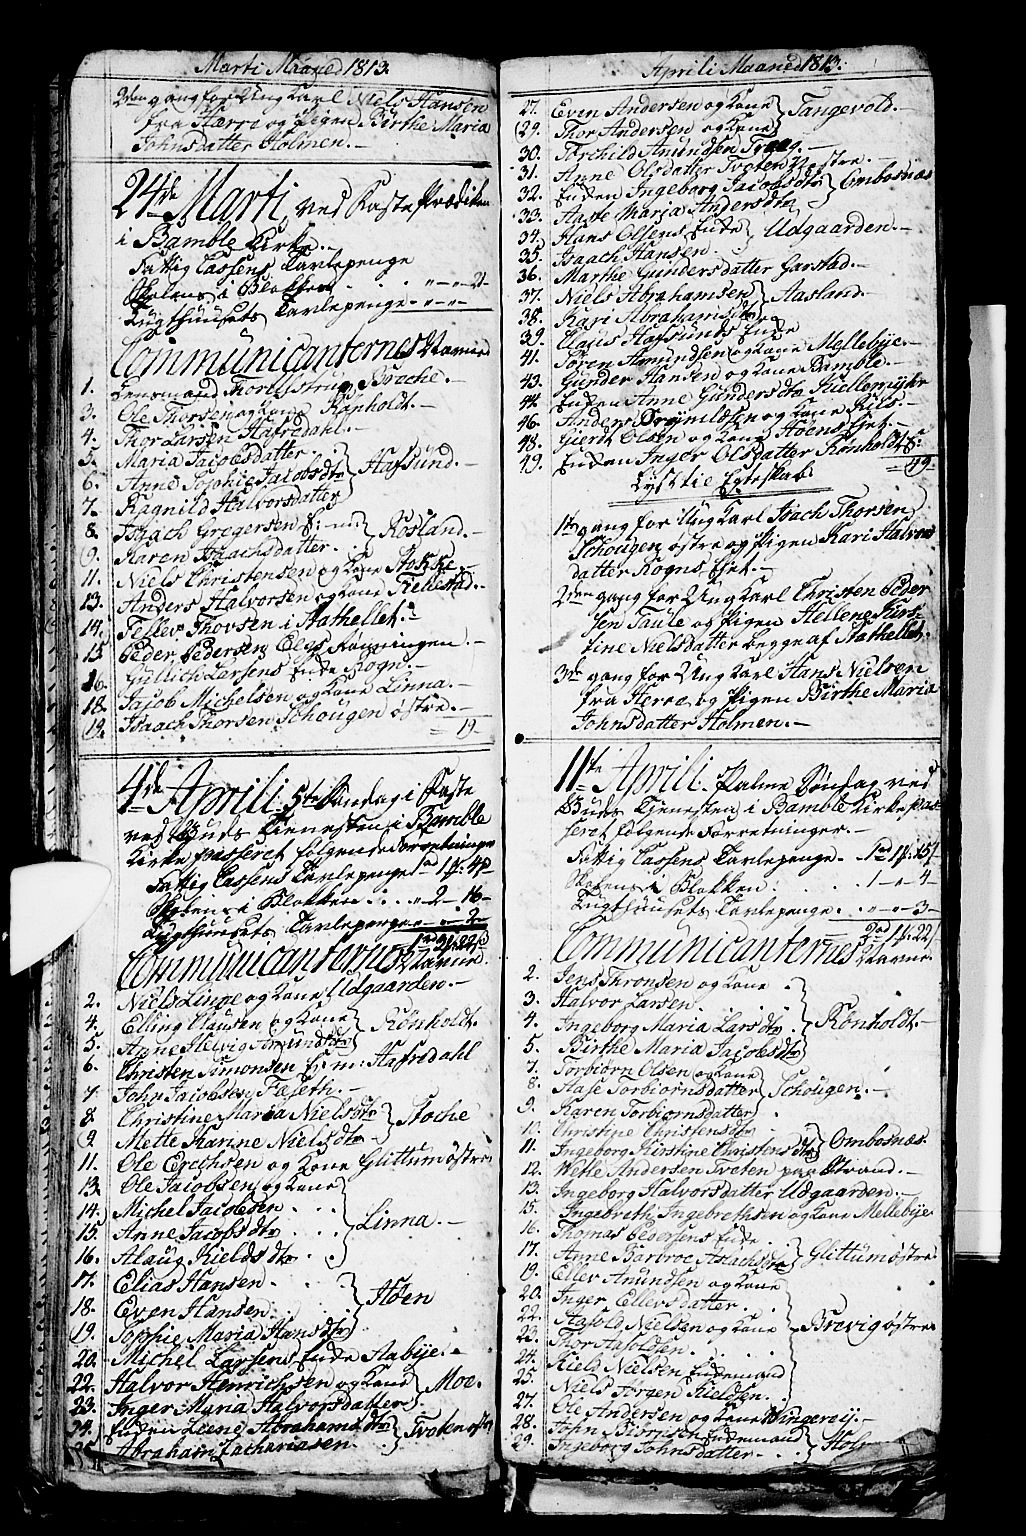 Marti Maaned 1813.
2den gang for Ung Karl Niels Hansen
fra Herre og Pigen Birthe Maria
Johnsdatter Holmen.
24de Marti, ved Faste Prædiken
i Bamble Kirke.
Fattig Cassens Tavlepenge
Skolens i Blokken
Tugthuusets Tavlepenge
Communicanternes Navne
1. Lensmand Trorllstrup Stoche.
3. Ole Thorsen og Kone Rønholdt.
4. Thor Larsen Hafredahl.
5. Maria Jacobsdatter
6. Anne Sophie Jacobsdtr } Hafsund.
7. Ragnild Halvorsdatter
8. Isaach Gregersen E: m: } Rosland.
9. Karen Isaachsdatter
11. Niels Christensen og Kone Stokke.
13. Anders Halvorsen og Kone Fillestad.
14. Feller Thorsen i Stathellet.
15. Peder Pedersen Elgs Rønningen.
16. Gulich Larsens Enke Rogn.
18. Jacob Michelsen og Kone Linna.
19. Isaach Thorsen Schougen østre.
19
4de Aprili. 5te Søndag i Faste
ved Guds Tienesten i Bamble
Kirke passeret følgende Forretninger
Fattig Cassens Tavlepenge
Skolens i Blokken
Tugthuusets Tavlepenge
Communicanternes Navne.
2. Niels Linne og Kone Udgaarden.
4. Elling Clausen og Kone } Rønholdt.
5. Anne Helvig Amundsdtr
6. Christen Simonsen E: m: Hafredahl
7. John Jacobsen Faseth.
8. Christine Maria Nielsdtr } Stoche
9. Mette Karine Nielsdtr
11. Ole Erichsen og Kone Glittum østre
13. Ole Jacobsen og Kone
14. Michel Jacobsen
15. Anne Jacobsdtr } Linna.
16. Alaug Kieldsdtr
17. Elias Hansen
18. Even Hansen } Aasen
19. Sophie Maria Hansdtr
20. Michel Larsens Enke Aabye.
22. Halvor Henrichsen og Kone } Moe.
23. Inger Maria Halvorsdatter
24. Enken Leene Abrahamsdtr } Tvoten østre
25. Abraham Zachariasen
Aprili Maaned 1813.
27. Even Andersen og Kone } Tangevold.
29. Thor Andersen og Kone
30. Torchild Amundsen Traag.
31. Anne Olsdatter Tvoten Vestre.
32. Enken Ingeborg Jacobsdtr } Ombosnæs
33. Aaste Maria Andersdtr
34. Hans Olsens Enke } Udgaarden.
35. Isaach Hansen
36. Marthe Gundersdatter Garstad.
37. Niels Abrahamsen } Aasland.
38. Kari Abrahamsdtr
39. Claus Hafsunds Enke
41. Søren Amundsen og Kone Mellebye.
43. Gunder Hansen og Kone Bamble.
44. Enken Anne Gundersdtr Hiellemyhr
46. Anders Brynildsen og Kone Riis.
48. Gierdt Olsen og Kone Aaens Eyet.
49. Enken Inger Olsdatter Rønholdts E:
49
Lystte til Egteskab
1te gang for Ung Karl Isach Thorsen
Schougen østre og Pigen Kari Halvors
datter Rogns Eyet.
2den gang for Ung Karl Christen Peder
sen Taule og Pigen Hellene Kirs
tine Nielsdatter begge af Stathellet.
3de gang for Ung Karl Hans Nielsen
fra Herre, og Pigen Birthe Maria
Johnsdatter Holmen.
11te Aprili. Palme Søndag ved
Guds Tienesten i Bamble Kirke pas
seret følgende Forretninger.
Fattig Cassens Tavlepenge.
Skolens i Blokken
Tugthuusets Tavlepenge
Communicanternes Navne.
2. Jens Thronsen og Kone
3. Halvor Larsen
4. Ingeborg Maria Larsdtr } Rønholdt.
5. Birthe Maria Jacobsdtr
7. Torbiørn Olsen og Kone
8. Aase Torbiørnsdatter } Schougen.
9. Karen Torbiørnsdatter
10. Christine Christensdtr } Ombosnæs
11. Ingeborg Kirstine Christensdtr
12. Wetle Andersen Tveten paa Strand.
13. Ingeborg Halvorsdatter Udgaarden.
15. Ingebreth Ingebrethsen og Kone Mellebye
16. Thomas Pedersens Enke } Glittum østre
17. Anne Barbroe Isachsdtr
19. Ellev Amundsen og Kone
20. Inger Ellevsdatter
22. Aasold Nielsen og Kone } Brevig østre
23. Thor Aasoldsen
24. Kield Nielsen Enkemand
25. Niels Jørgen Kieldsen
27. Ole Andersen og Kone Wingereij.
28. John Biørnsen Enkemand
29. Ingeborg Johnsdatter